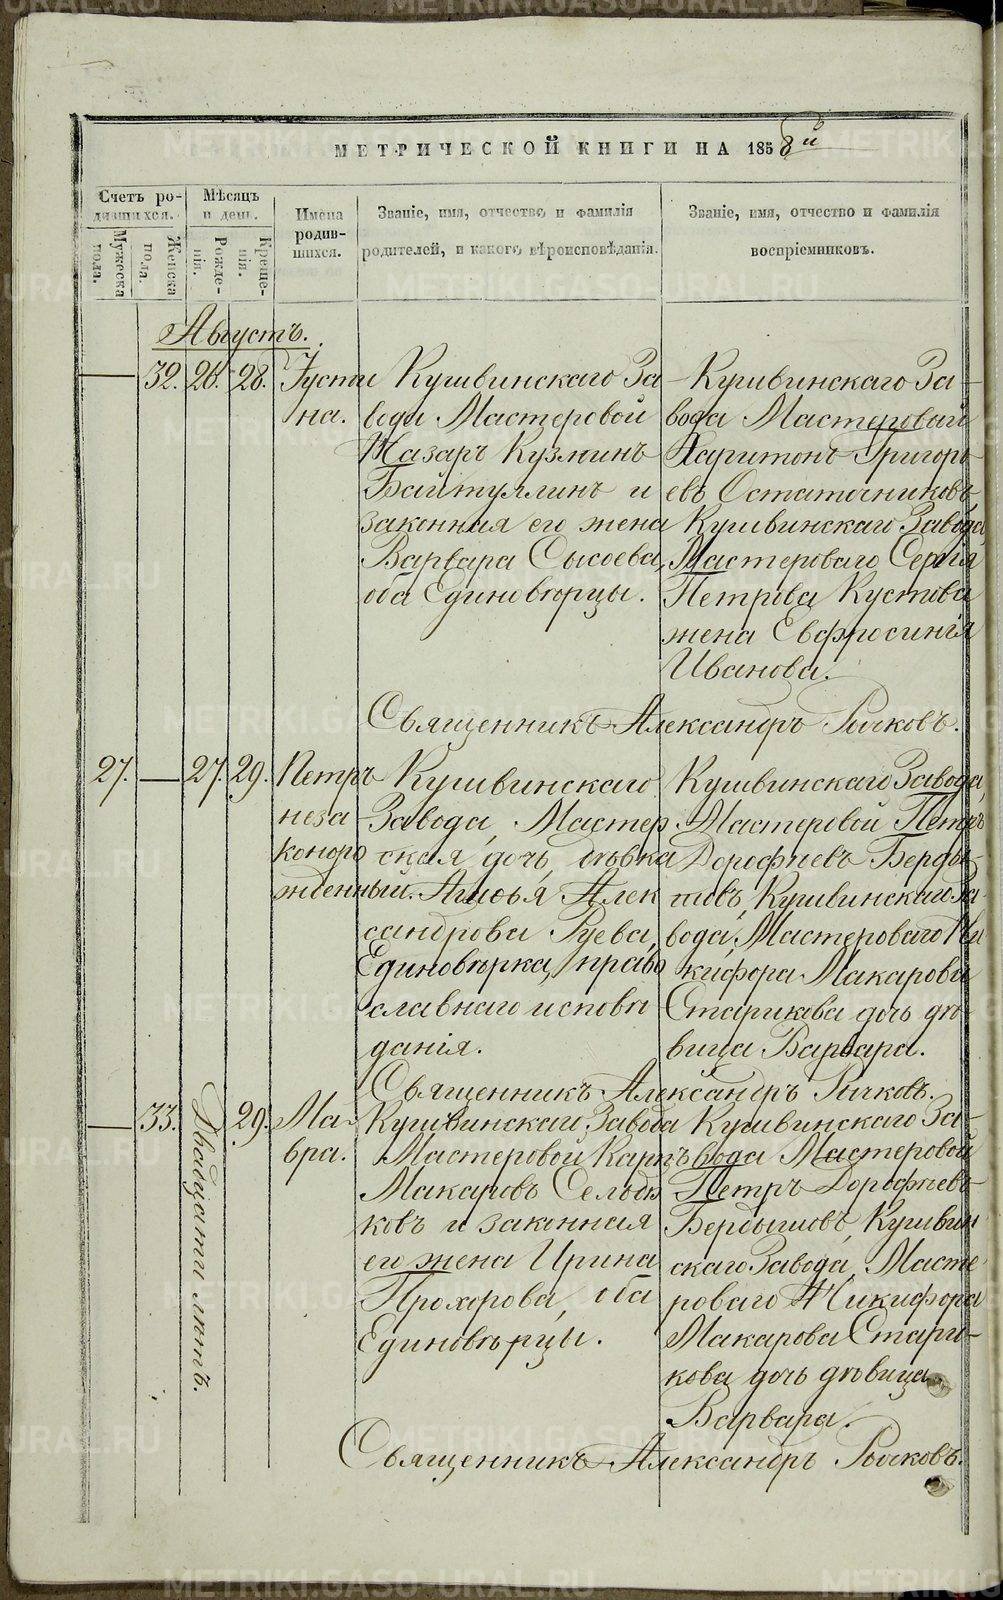 МЕТРИЧЕСКОЙ КНИГИ НА 1858й
Счетъ ро-
дившихся.
Мужеска
пола.
Женска
пола.
Мѣсяцъ
и день.
Рожде-
нія.
Креще-
нія.
Имена
родив-
шихся.
Званіе, имя, отчество, и фамилія
родителей, и какого вѣроисповѣданія.
Званіе, имя, отчество и фамилія
воспріемниковъ.
Августъ.
32. 26. 28. Іусти
на.
Кушвинскаго За
вода Мастеровой
Назаръ Кузминъ
Байтулинъ и
законная его жена
Варвара Сысоева,
оба Единоверцы.
Кушвинскаго За-
вода Мастеровой
Харитонъ Григорь
евъ Остаточниковъ,
Кушвинскаго Завода,
Мастероваго Сергія
Петрова Кустова
жена Евфросинія
Иванова.
Священникъ Александръ Рычковъ.
27. 27. 29. Петръ
неза
конноро
жденный.
Кушвинскаго
Завода, Мастер
ская дочь, девка
Агафья Алек
сандрова Гуева,
Единоверка, право
славнаго испове
данія.
Кушвинскаго Завода,
Мастеровой Петръ
Дорофѣевъ Берды-
шовъ, Кушвинскаго За-
вода, Мастероваго Ни
кифора Макарова
Старикова дочь дѣ-
вица Варвара.
Священникъ Александръ Рычковъ.
33. Двадцати лѣтъ. 29. Ма-
вра.
Кушвинскаго Завода
Мастеровой Карпъ
Макаровъ Сельдю
ковъ и законная
его жена Ирина
Прохорова, оба
Единовѣрцы.
Кушвинскаго За-
вода Мастеровой
Петръ Дорофѣевъ
Бердышовъ, Кушвин
скаго Завода, Масте
роваго Никифора
Макарова Стари-
кова дочь дѣвица
Варвара.
Священникъ Александръ Рычковъ.
METRIKI.GASO-URAL.RU